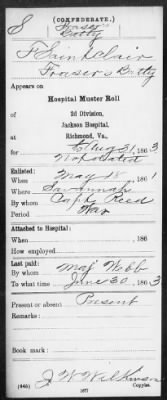 (CONFEDERATE.)
S Fraser's Batty
F Saint Clair
Fraser's Batty
Appears on
Hospital Muster Roll
2d Division,
Jackson Hospital,
Richmond, Va.,
for to Aug 31, 1863
Not dated
Enlisted:
When May 18, 1861
Where Savannah
By whom Capt. Reed
Period War
Attached to Hospital:
When , 186
How employed
Last paid:
By whom Maj Webb
To what time June 30, 1863
Present or absent Present
Remarks:
Book mark:
J W Wilkinson
Copyist.